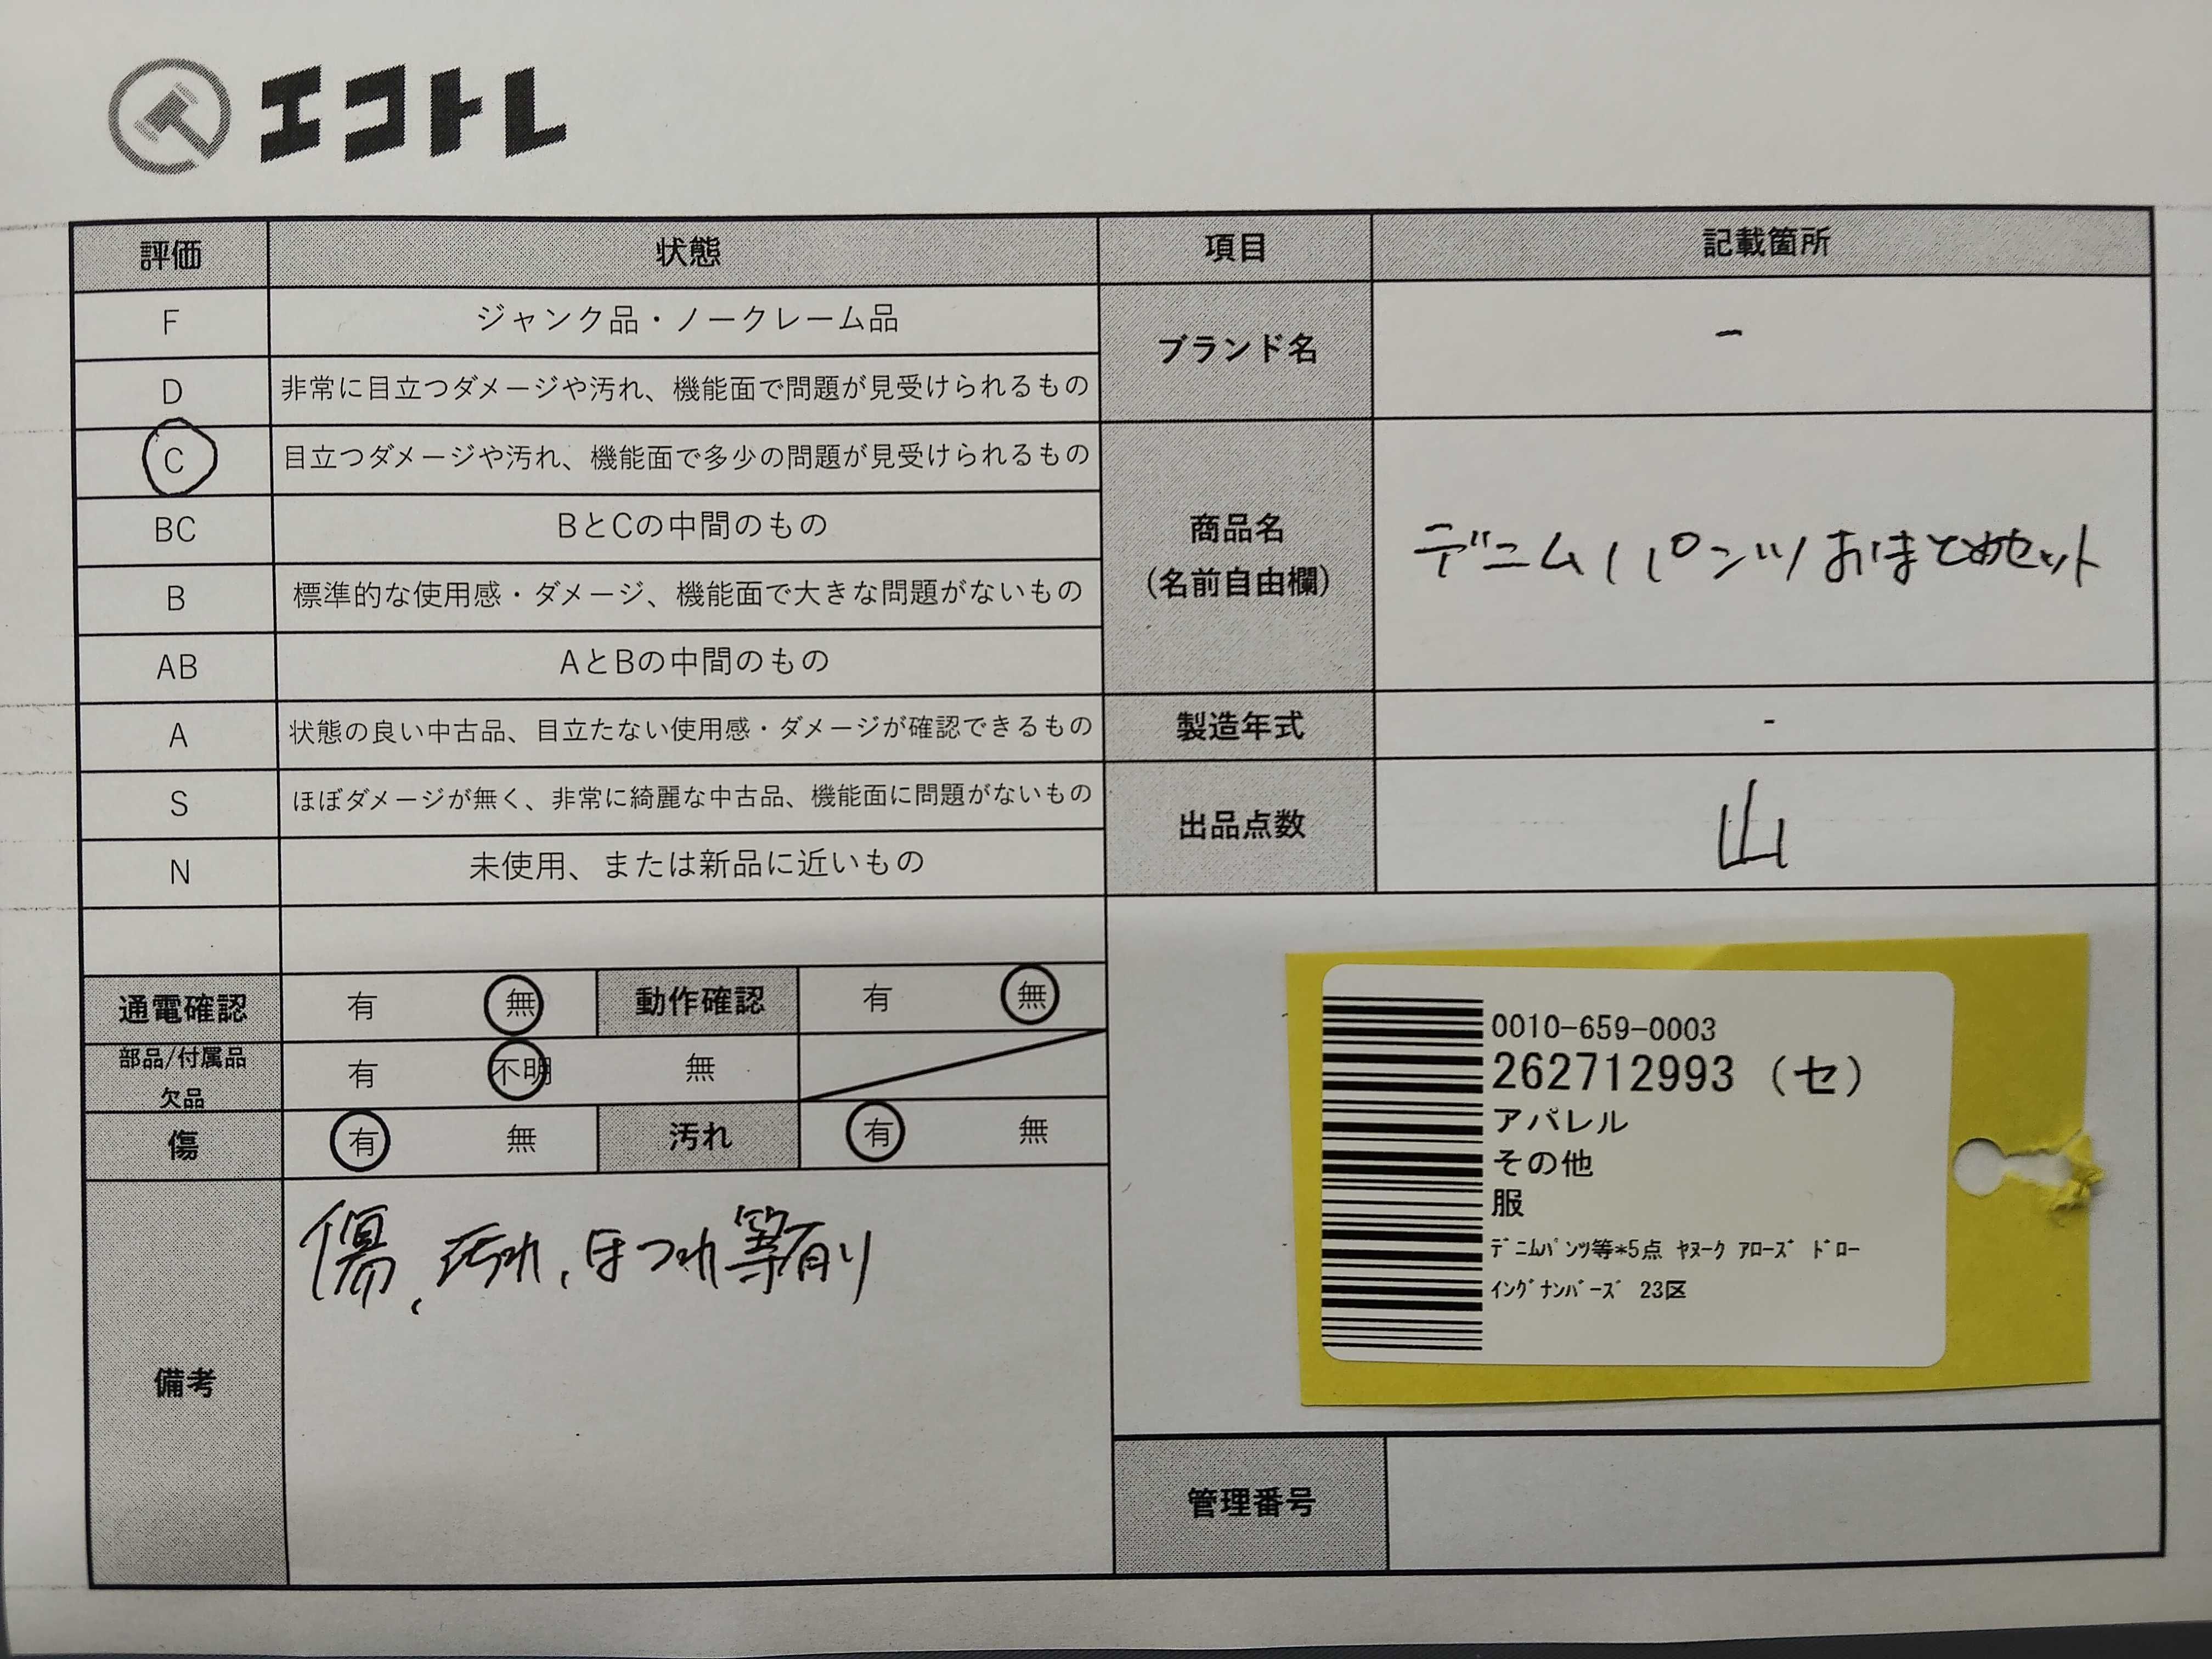 エコトレ
評価 状態 項目 記載箇所
F ジャンク品・ノークレーム品
D 非常に目立つダメージや汚れ、機能面で問題が見受けられるもの
C 目立つダメージや汚れ、機能面で多少の問題が見受けられるもの
BC BとCの中間のもの
B 標準的な使用感・ダメージ、機能面で大きな問題がないもの
AB AとBの中間のもの
A 状態の良い中古品、目立たない使用感・ダメージが確認できるもの
S ほぼダメージが無く、非常に綺麗な中古品、機能面に問題がないもの
N 未使用、または新品に近いもの
ブランド名 -
商品名
(名前自由欄)
デニムパンツおまとめセット
製造年式 -
出品点数 山
通電確認 有 無 動作確認 有 無
部品/付属品
欠品
有 不明 無
傷 有 無 汚れ 有 無
備考
傷、汚れ、ほつれ等有り
0010-659-0003
262712993 (セ)
アパレル
その他
服
ﾃﾞﾆﾑﾊﾟﾝﾂ等*5点 ﾔﾇｰｸ ｱﾛｰｽﾞ ﾄﾞﾛｰ
ｲﾝｸﾞﾅﾝﾊﾞｰｽﾞ 23区
管理番号